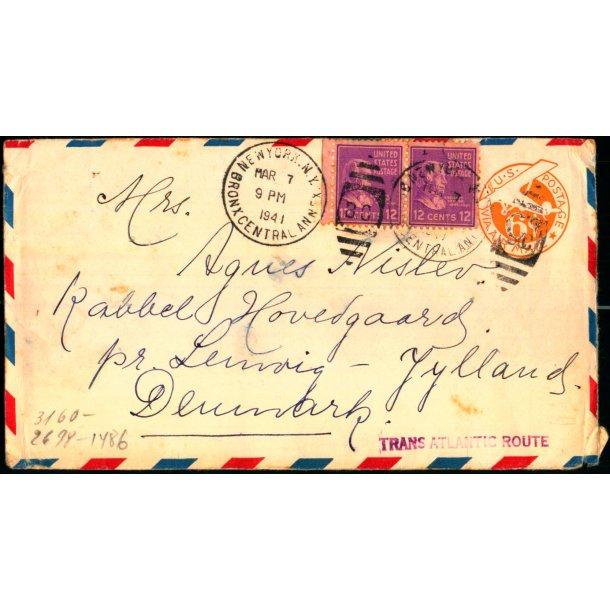 NEW YORK, N.Y.
MAR 7
9 PM
1941
BRONX CENTRAL ANNEX
UNITED STATES POSTAGE
12 CENTS 12
UNITED STATES POSTAGE
12 CENTS 12
CENTRAL ANN
U.S. POSTAGE
6
Mrs.
Agnes Nislev
Kabbel Hovedgaard
pr Lemvig - Jylland.
Denmark.
3160-
2698-1486
TRANS ATLANTIC ROUTE